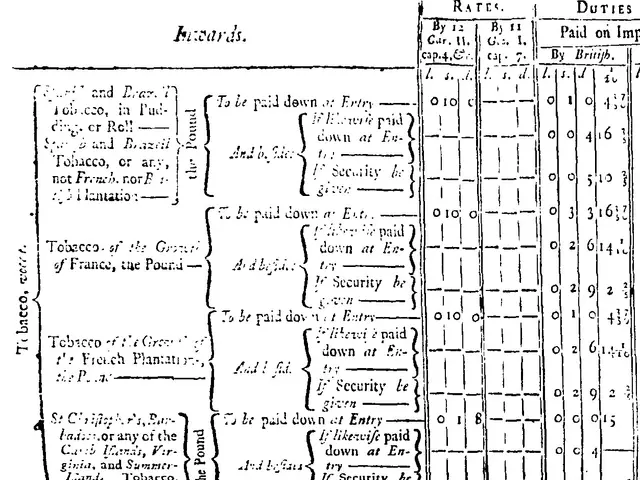 Inwards.
RATES.
DUTIES
By 12 Car. II. cap. 4, &c.
By 11 Geo. I. cap. 7.
Paid on Imp
By British.
l. s. d. l. s. d. l. s. d.
Tobacco, vocat.
Spanish and Brazil
Tobacco, in Pud-
ding, or Roll
Spanish and Brazil
Tobacco, or any,
not French, nor Bri-
tish Plantation
the Pound
To be paid down at Entry 0 10 0 0 1 0
And besides
If likewise paid
down at En-
try 0 0 4 16
If Security be
given 0 0 5 10
Tobacco of the Growth
of France, the Pound
To be paid down at Entry 0 10 0 0 3 3
And besides
If likewise paid
down at En-
try 0 2 6
If Security be
given 0 2 9
Tobacco of the Growth of
the French Plantations,
the Pound
To be paid down at Entry 0 10 0 0 1 0
And besides
If likewise paid
down at En-
try 0 2 6
If Security be
given 0 2 9
St Christopher's, Bar-
badoes, or any of the
Carib Islands, Vir-
ginia, and Summer-
Islands, Tobacco,
the Pound
To be paid down at Entry 0 1 8 0 0 0 15
And besides
If likewise paid
down at En-
try 0 0 4
If Security be